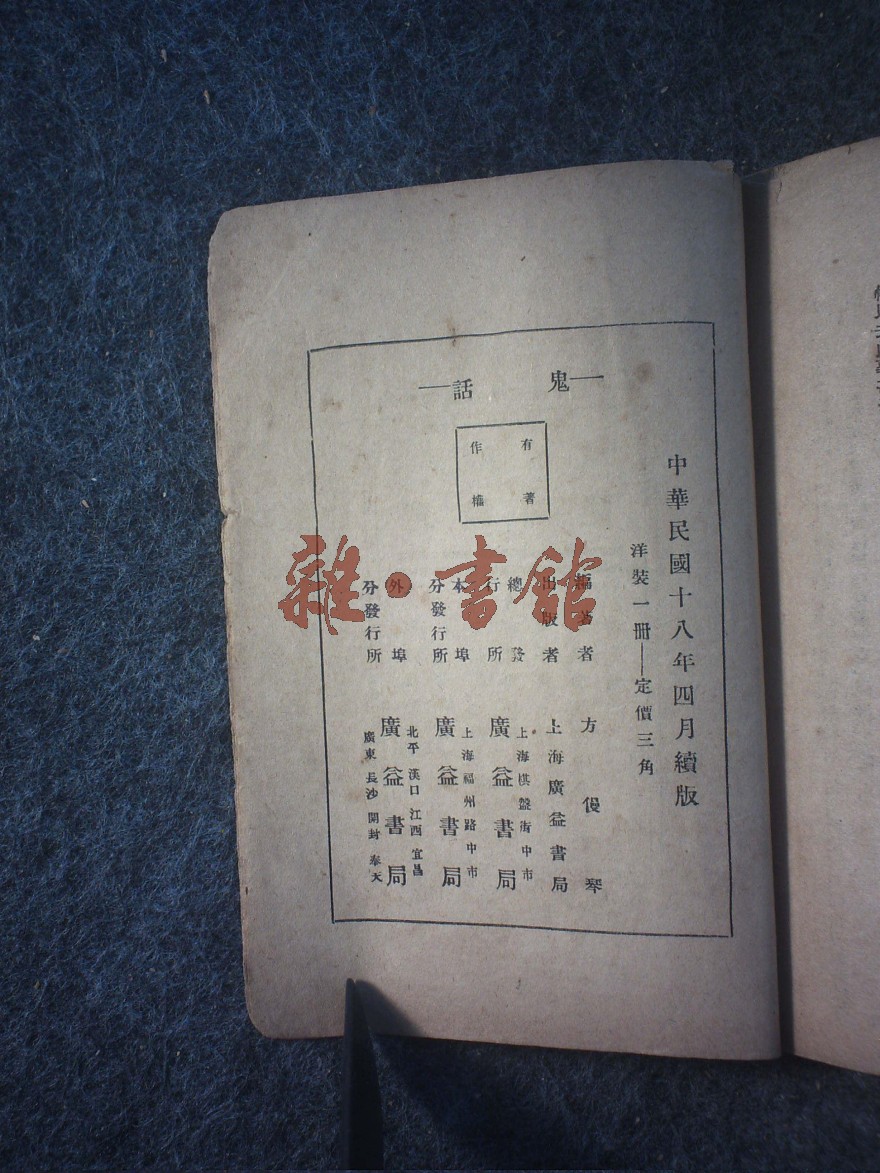 鬼話
有著作權
中華民國十八年四月續版
洋裝一冊——定價三角
編著者 方慢琴
出版者 上海廣益書局
總發行所 上海棋盤街中市 廣益書局
本埠分發行所 上海福州路中市 廣益書局
外埠分發行所 北平 漢口 江西 宜昌 廣東 長沙 開封 奉天 廣益書局
雜·書館